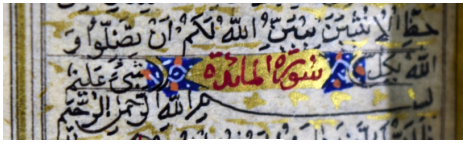 حظ الانثيين يبين الله لكم ان تضلوا و
الله بكل سورة المائدة شئ عليم
بسم الله الرحمن الرحيم